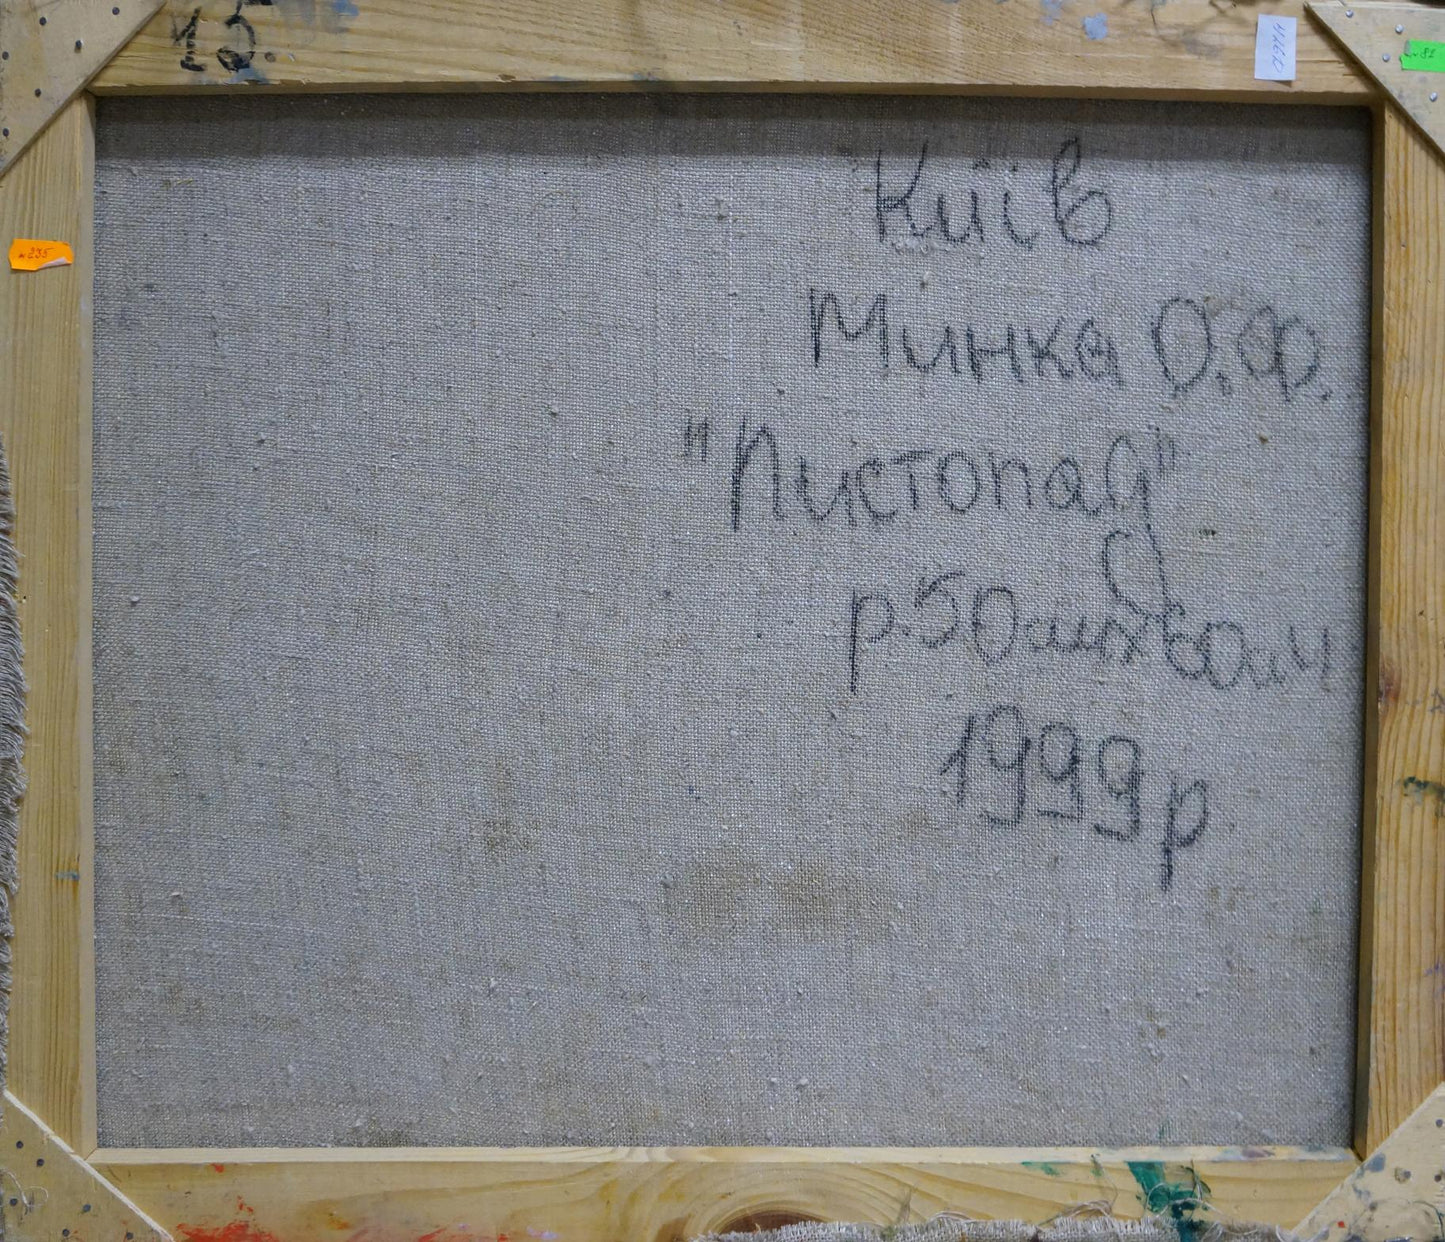 15.
№ 81
№235
Київ
Минка О.Ф.
"Листопад"
р.50смх60см
1999р